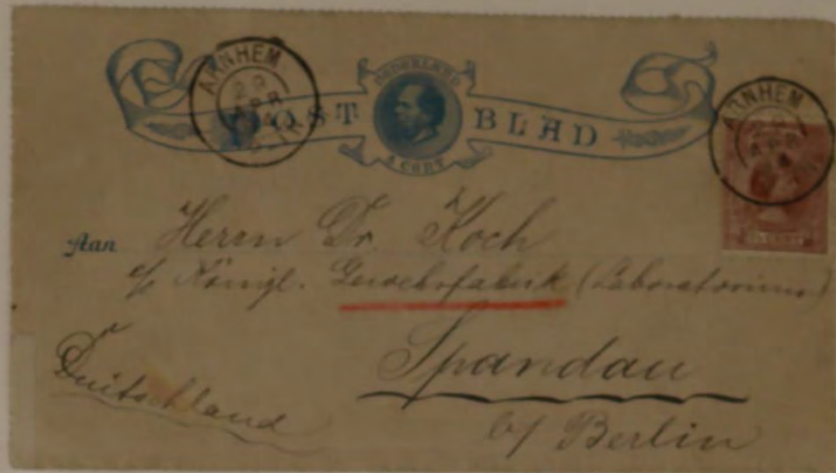 ARNHEM
29
APR
NEDERLAND
POST BLAD
CENT
ARNHEM
Aan Herrn Dr. Koch
Königl. Gewehrfabrik (Laboratorium)
Spandau
Duitschland
b/ Berlin